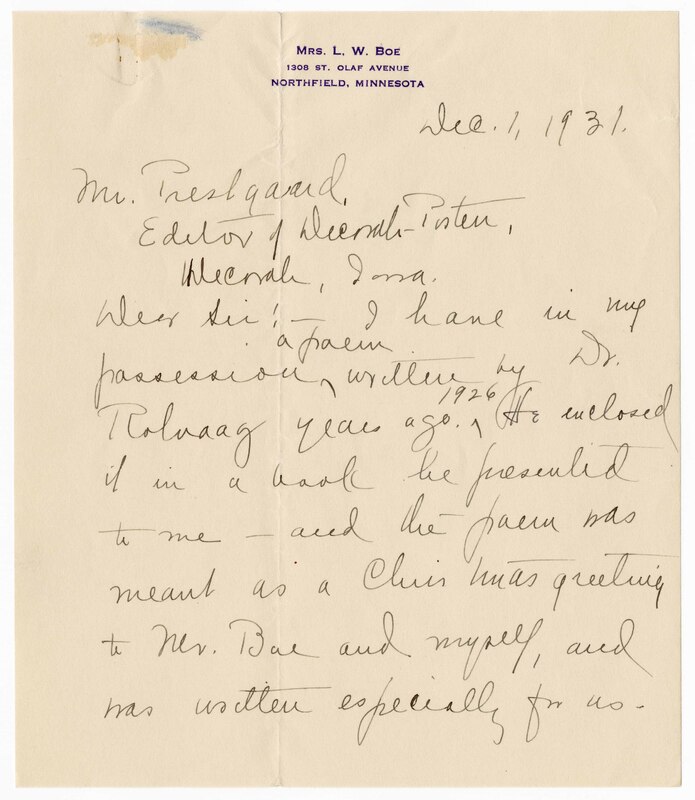 MRS. L. W. BOE
1308 ST. OLAF AVENUE
NORTHFIELD, MINNESOTA
Dec. 1, 1931.
Mr. Prestgaard,
Editor of Decorah-Posten,
Decorah, Iowa.
Dear Sir! — I have in my
a poem
possession, written by Dr.
1926
Rolvaag years ago. He enclosed
it in a book he presented
to me — and the poem was
meant as a Christmas greeting
to Mr. Boe and myself, and
was written especially for us -